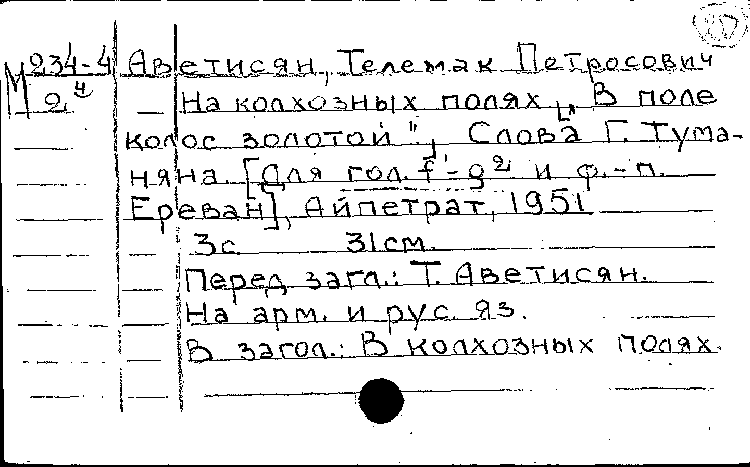 М 234-4 Аветисян, Телемак Петросович
2. 4 На колхозных полях [„В поле
колос золотой"], Слова Г. Тума-
няна. [Для гол. f'-g² и ф.-п.
Ереван], Айпетрат, 1951
3с. 31см.
Перед загл.: Т. Аветисян.
На арм. и рус. яз.
В загол.: В колхозных полях.